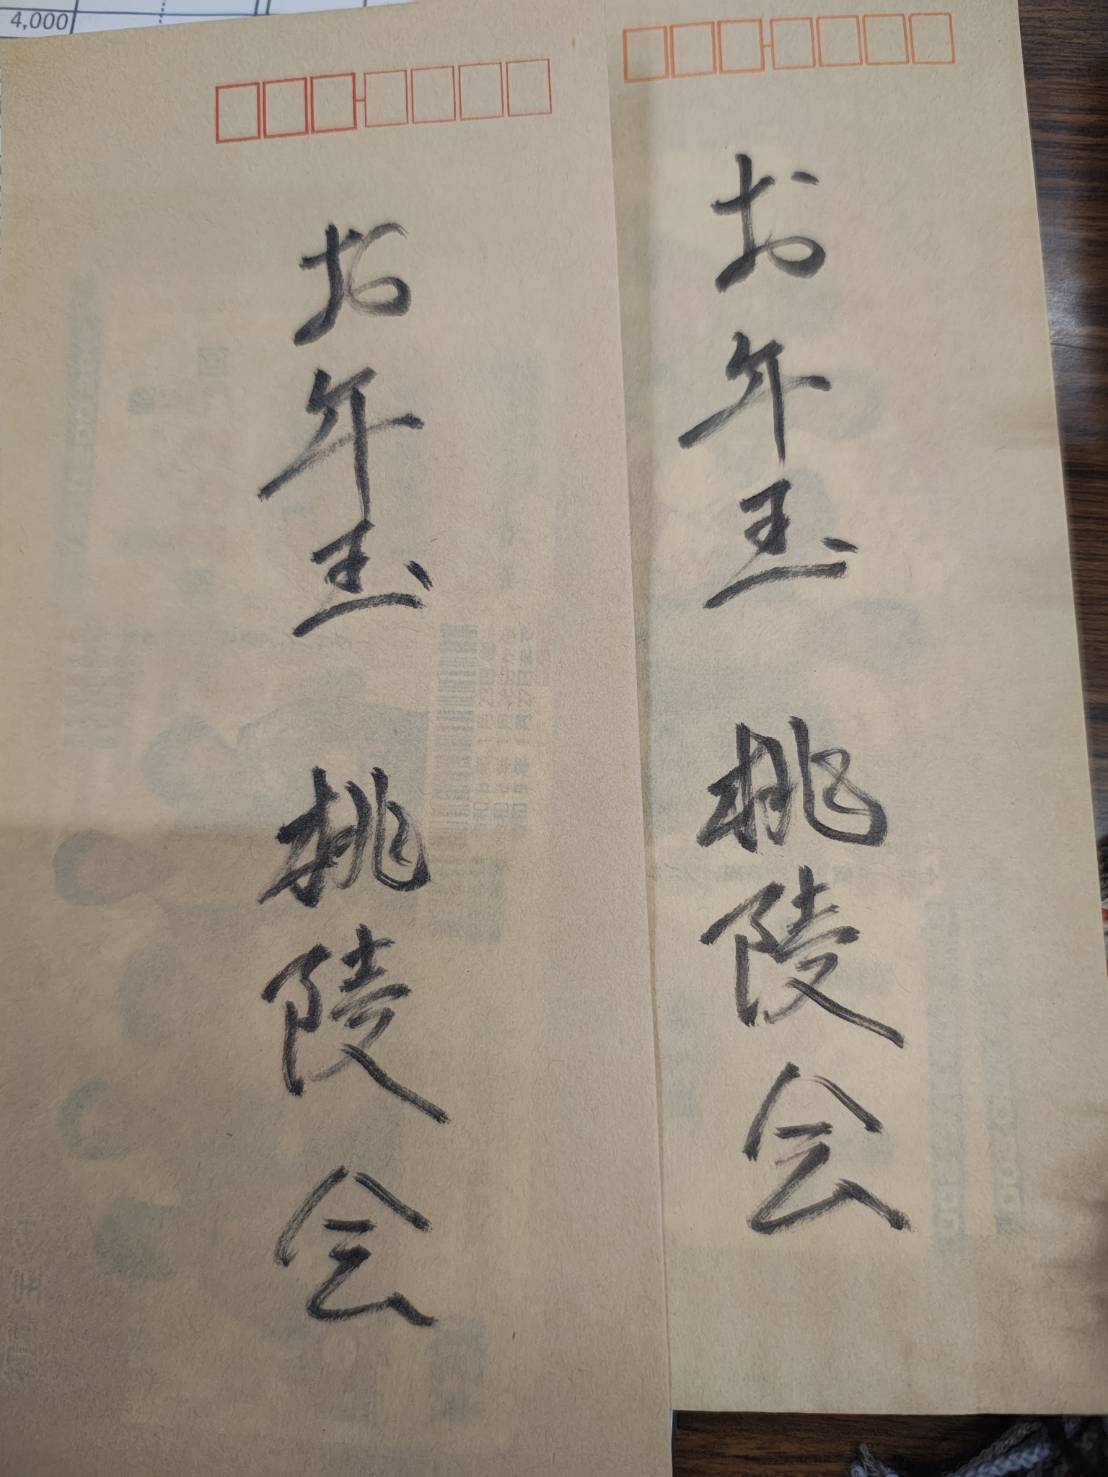 4,000
お年玉 桃陵会
お年玉 桃陵会